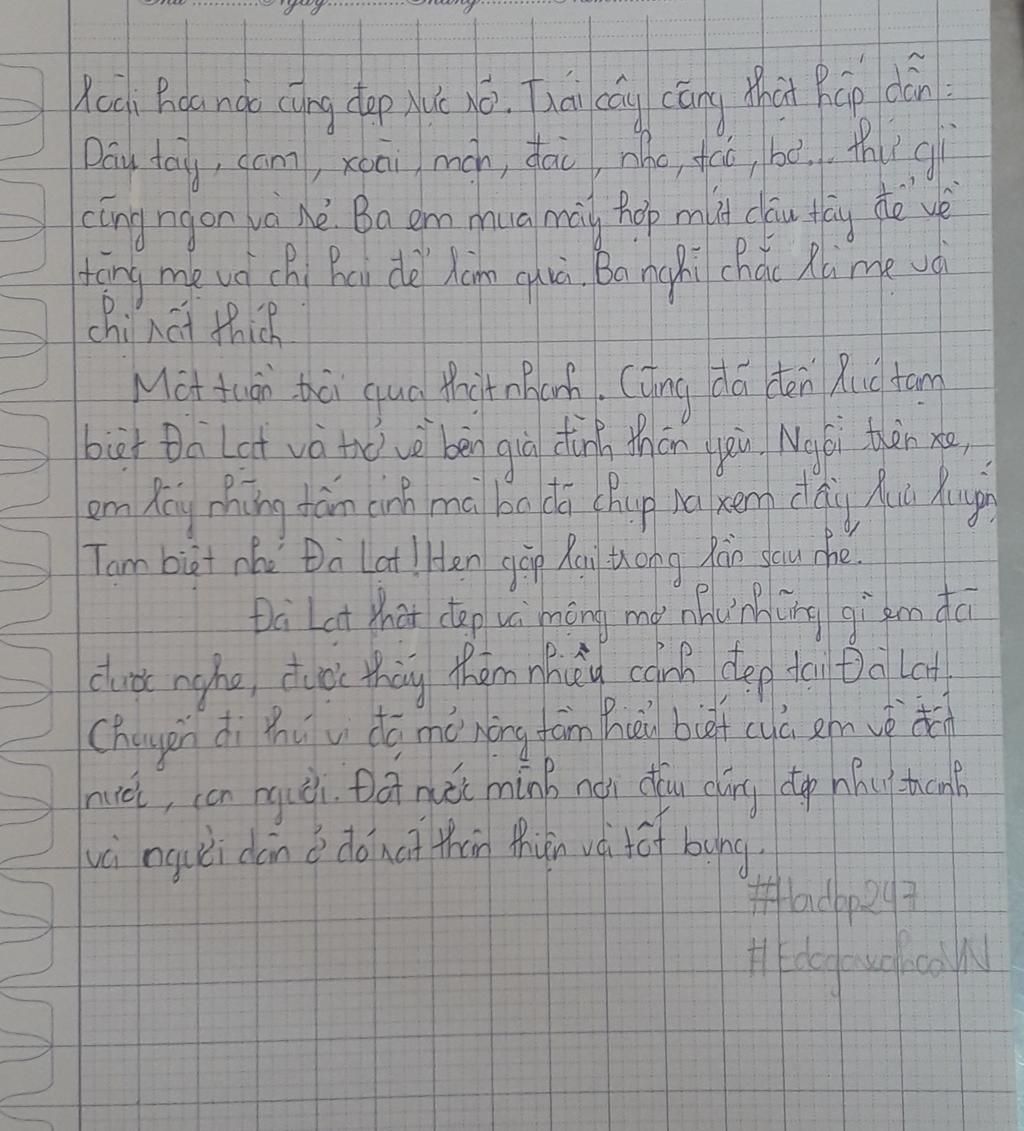 loài hoa nào cũng đẹp rực rỡ. Trái cây cũng thật hấp dẫn:
Dâu tây, cam, xoài, mận, đào, nho, táo, bơ... thứ gì
cũng ngon và rẻ. Ba em mua mấy hộp mứt dâu tây để về
tặng mẹ và chị hai để làm quà. Ba nghĩ chắc là mẹ và
chị rất thích.
Một tuần trôi qua thật nhanh. Cũng đã đến lúc tạm
biệt Đà Lạt và trở về bên gia đình thân yêu. Ngồi trên xe,
em lấy những tấm ảnh mà ba đã chụp ra xem đầy lưu luyến
Tạm biệt nhé Đà Lạt! Hẹn gặp lại trong lần sau nhé.
Đà Lạt thật đẹp và mộng mơ như những gì em đã
được nghe, được thấy thêm nhiều cảnh đẹp tại Đà Lạt.
Chuyến đi thú vị đã mở rộng tầm hiểu biết của em về đất
nước, con người. Đất nước mình nơi đâu cũng đẹp như tranh
và người dân ở đó rất thân thiện và tốt bụng.
#Hadbp247